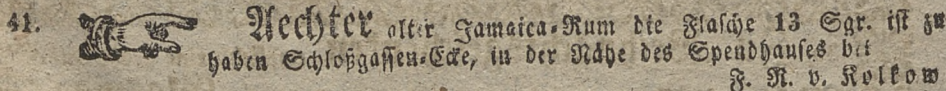 41. Aechter alter Jamaica-Rum die Flasche 13 Sgr. ist zu
haben Schloßgassen-Ecke, in der Nähe des Spendhauses bei
F. R. v. Kolkow